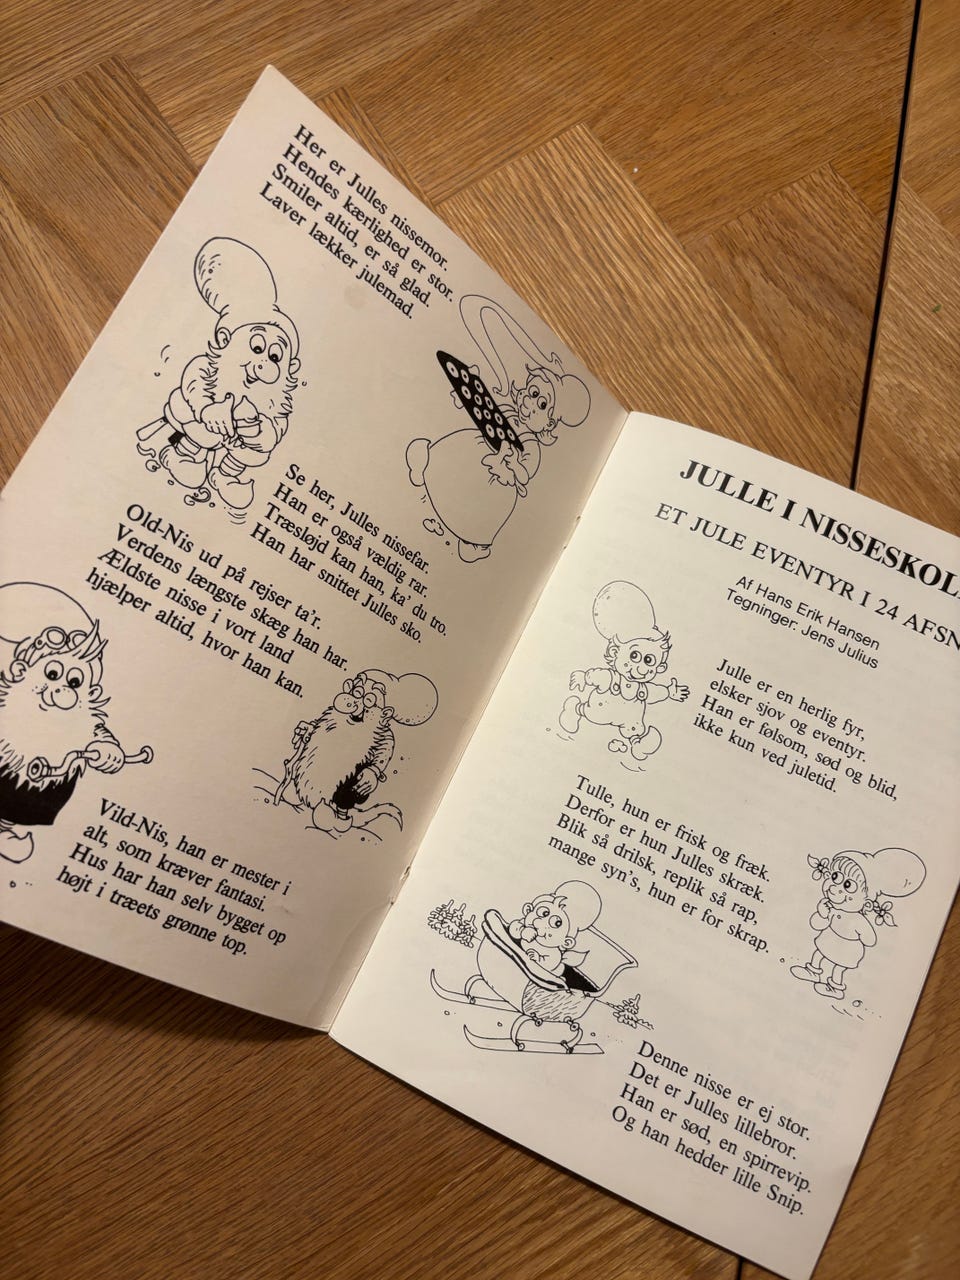 Her er Julles nissemor.
Hendes kærlighed er stor.
Smiler altid, er så glad.
Laver lækker julemad.
Se her, Julles nissefar.
Han er også vældig rar.
Træsløjd kan han, ka' du tro.
Han har snittet Julles sko.
Old-Nis ud på rejser ta'r.
Verdens længste skæg han har.
Ældste nisse i vort land
hjælper altid, hvor han kan.
Vild-Nis, han er mester i
alt, som kræver fantasi.
Hus har han selv bygget op
højt i træets grønne top.
JULLE I NISSESKOL
ET JULE EVENTYR I 24 AFSN
Af Hans Erik Hansen
Tegninger: Jens Julius
Julle er en herlig fyr,
elsker sjov og eventyr.
Han er følsom, sød og blid,
ikke kun ved juletid.
Tulle, hun er frisk og fræk.
Derfor er hun Julles skræk.
Blik så drilsk, replik så rap,
mange syn's, hun er for skrap.
Denne nisse er ej stor.
Det er Julles lillebror.
Han er sød, en spirrevip.
Og han hedder lille Snip.